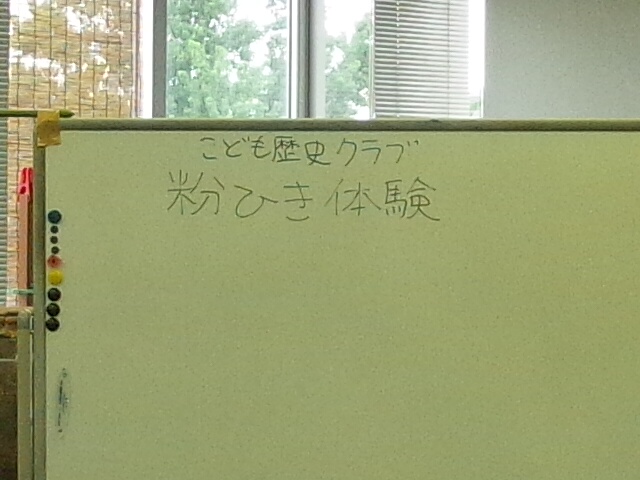 こども歴史クラブ
粉ひき体験